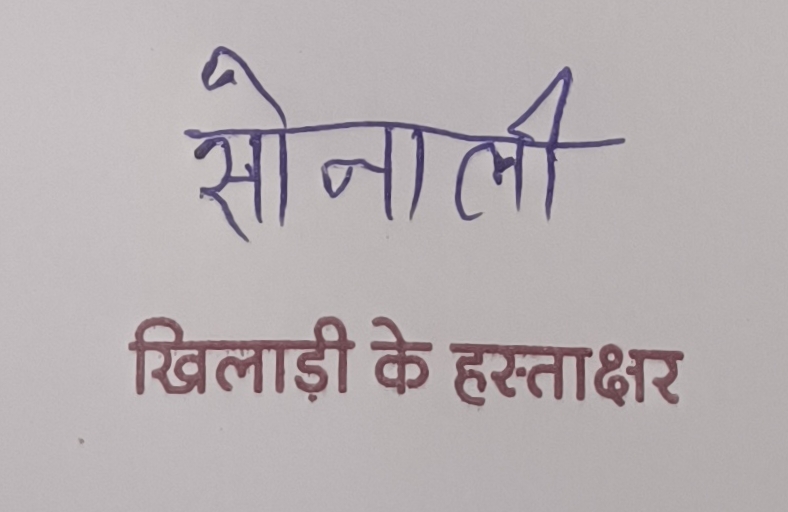 सोनाली
खिलाड़ी के हस्ताक्षर